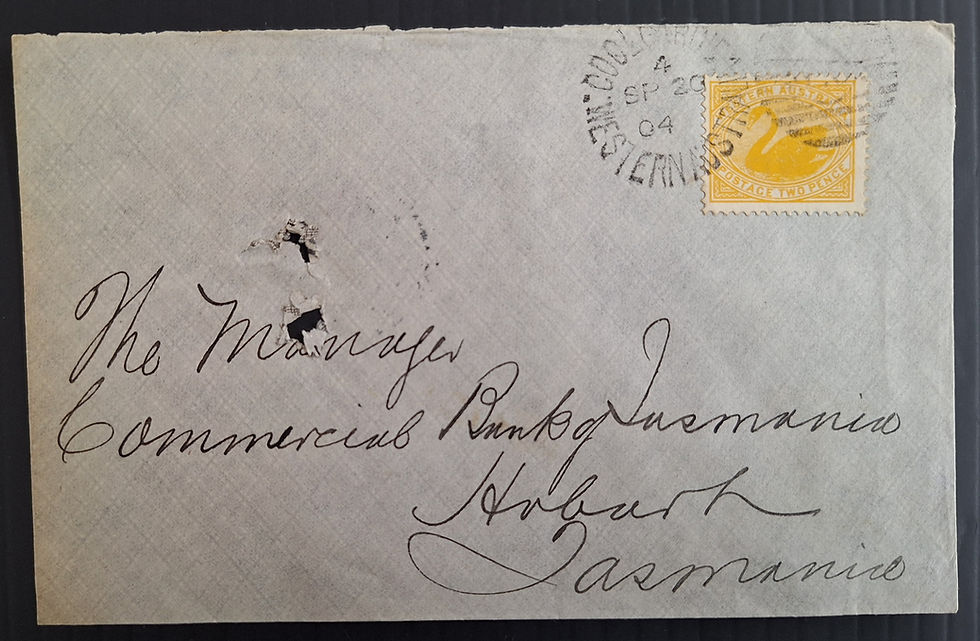 4
SP 20
04
WESTERN
POSTAGE TWO PENCE
The Manager
Commercial Bank of Tasmania
Hobart
Tasmania